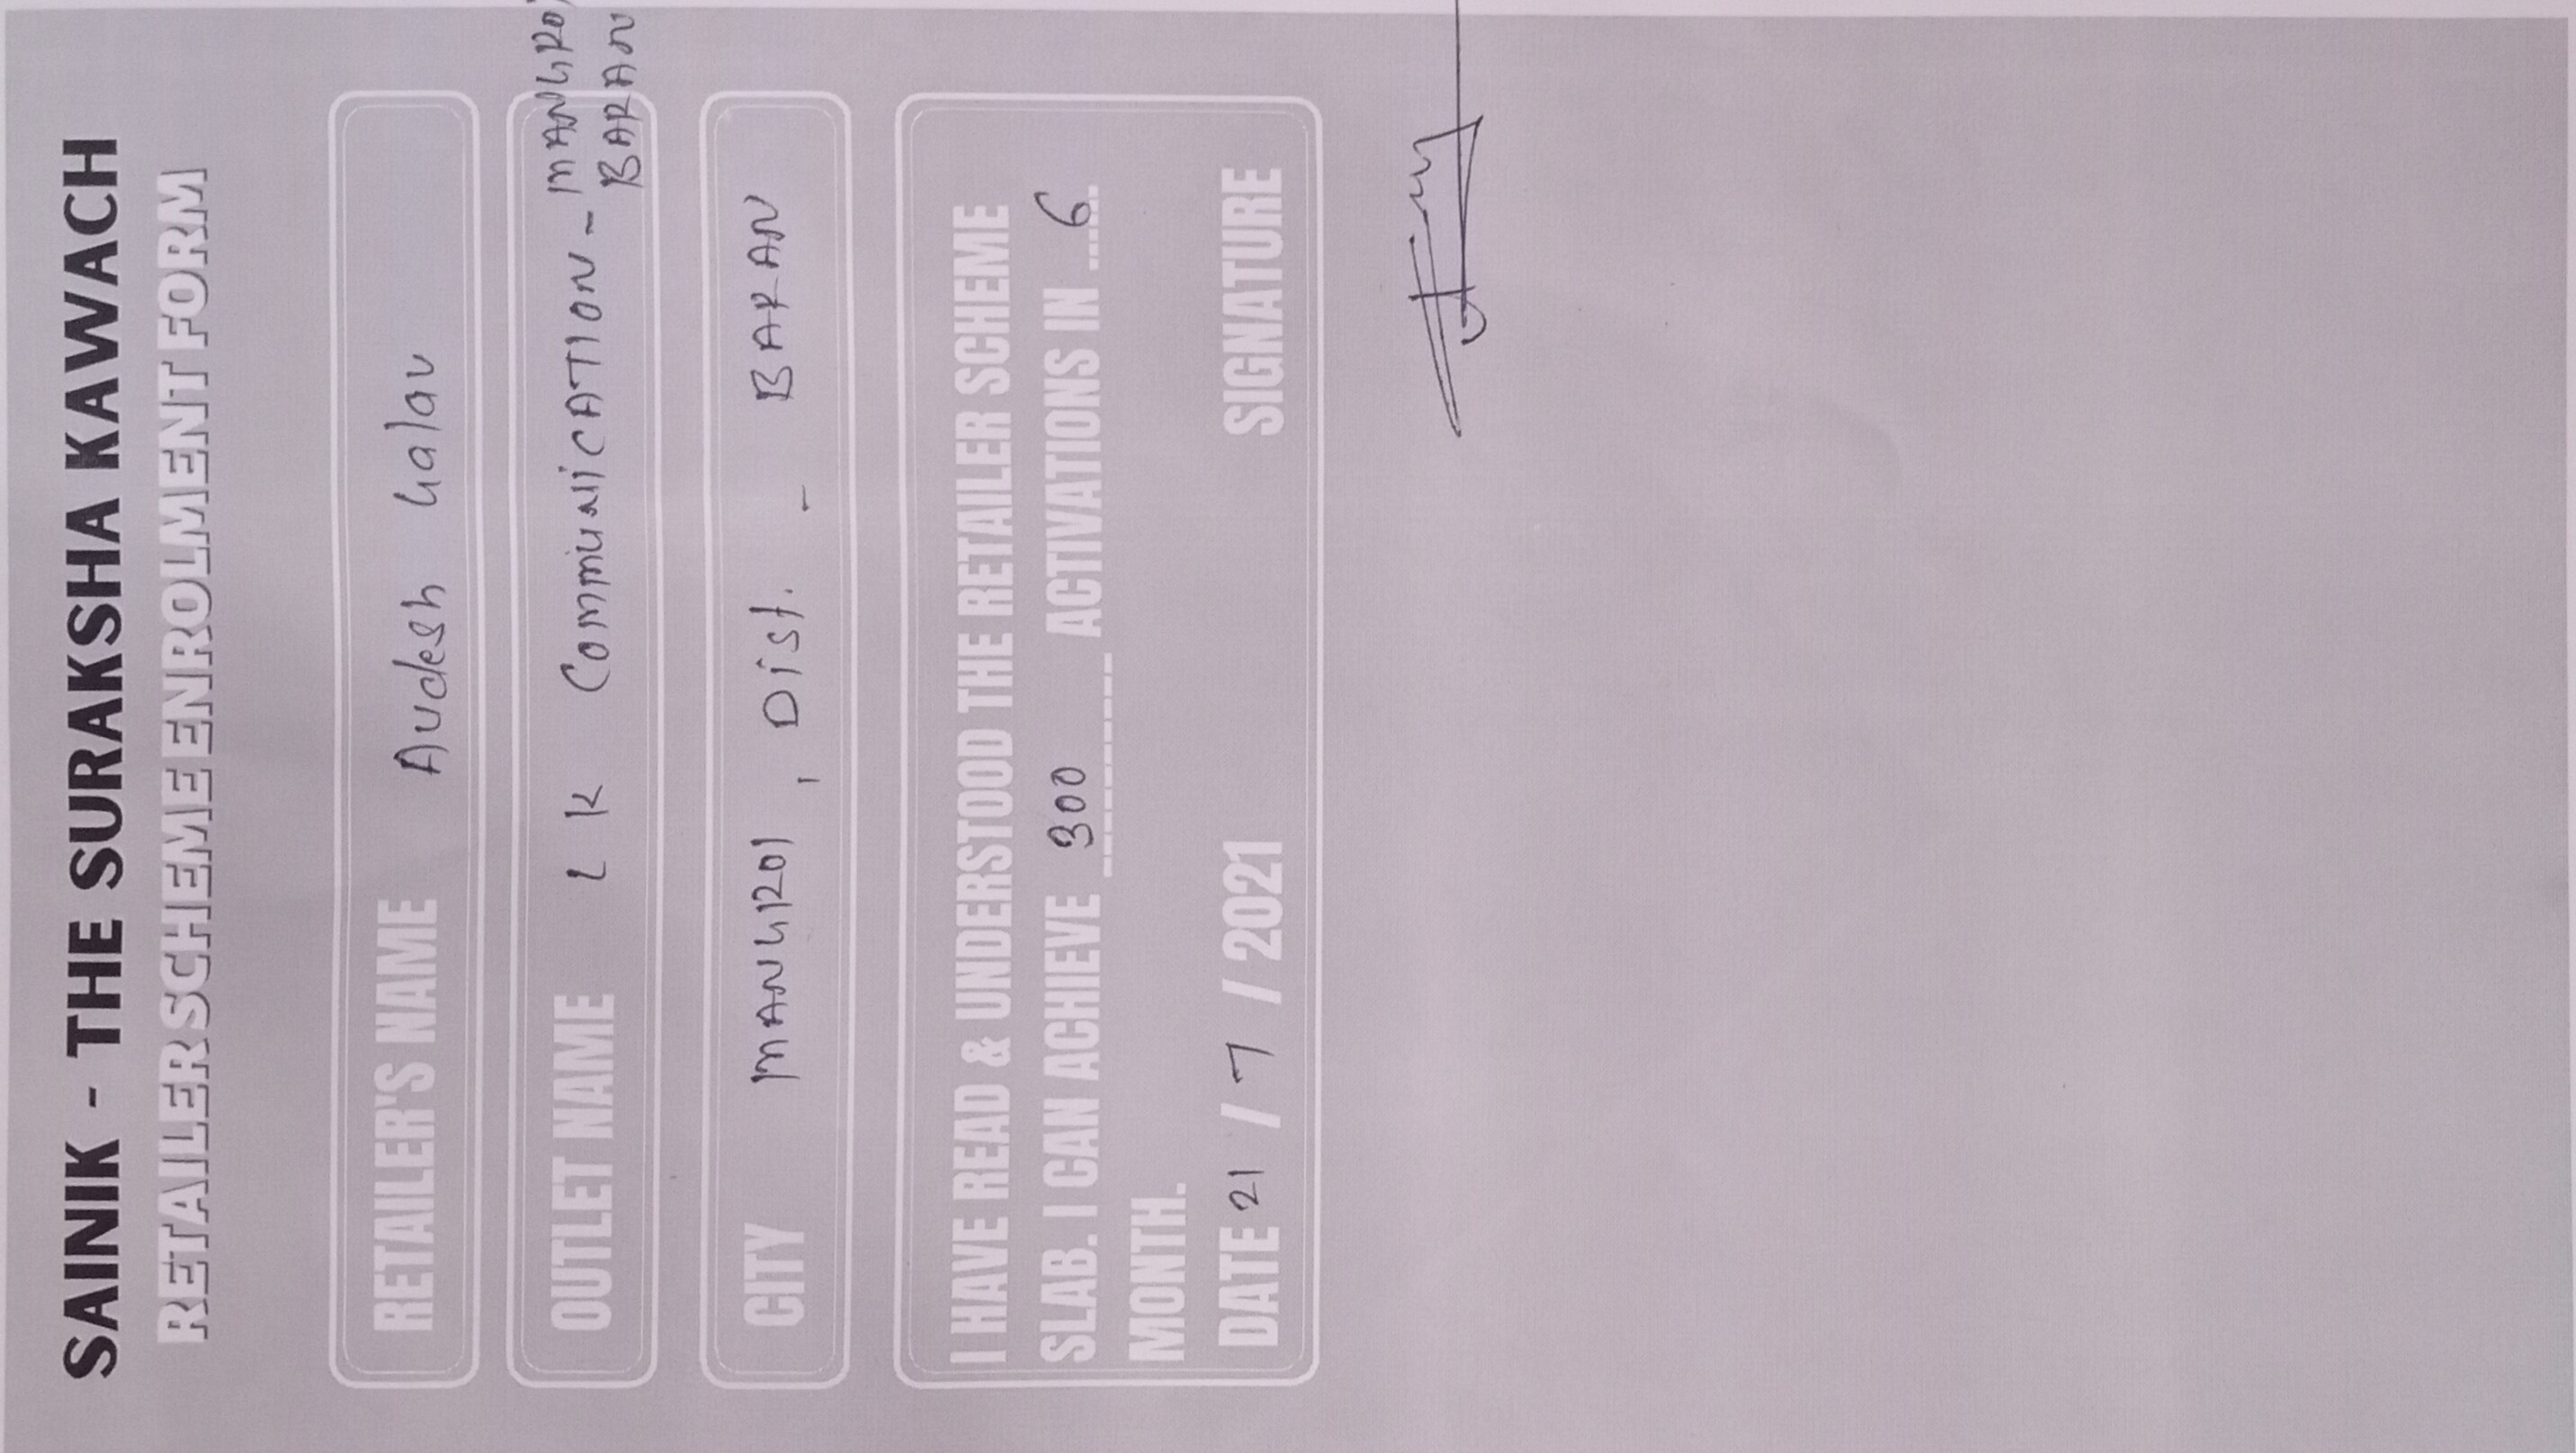 SAINIK - THE SURAKSHA KAWACH
RETAILER SCHEME ENROLMENT FORM
RETAILER'S NAME Avdesh Galav
OUTLET NAME L K COMMUNICATION - MANGROL
BARAN
CITY MANGROL, Dist. - BARAN
I HAVE READ & UNDERSTOOD THE RETAILER SCHEME
SLAB. I CAN ACHIEVE 300 ACTIVATIONS IN 6
MONTH.
DATE 21 / 7 / 2021 SIGNATURE